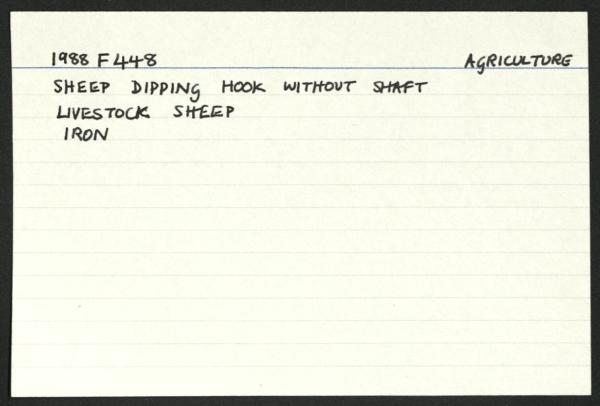 1988 F 448 AGRICULTURE
SHEEP DIPPING HOOK WITHOUT SHAFT
LIVESTOCK SHEEP
IRON